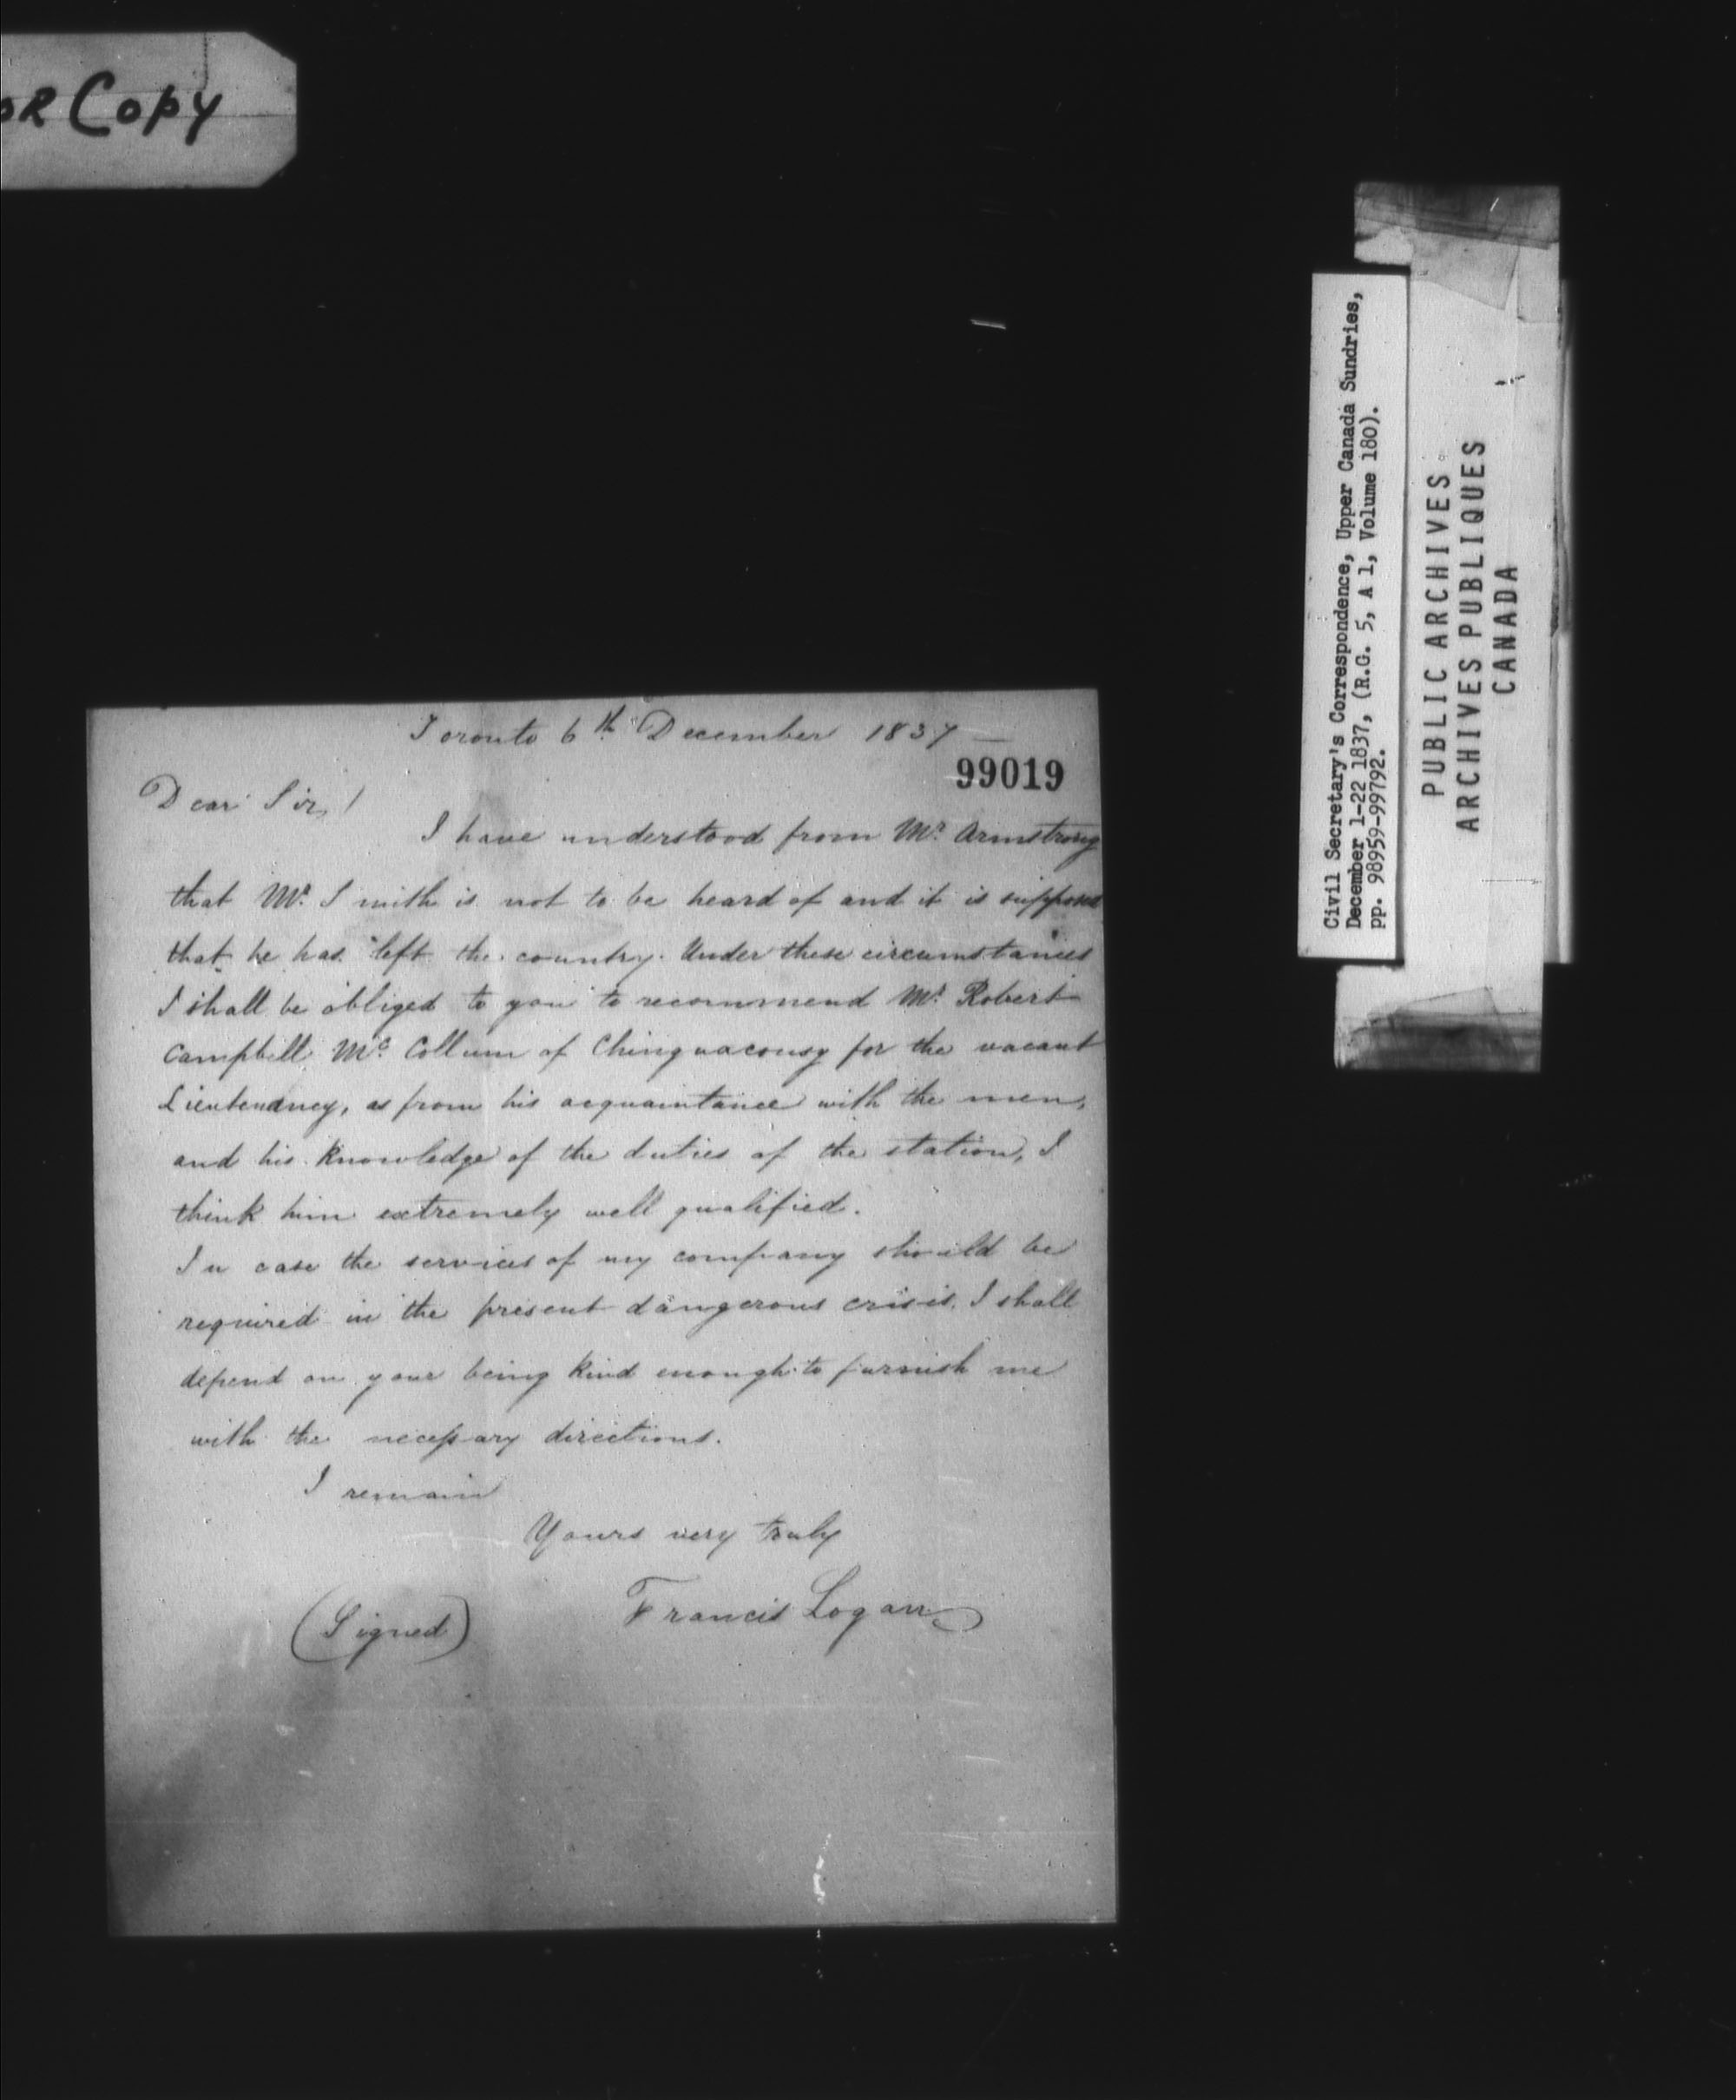 OR Copy
Toronto 6th December 1837
99019
Dear Sir,
I have understood from Mr. Armstrong
that Mr. Smith is not to be heard of and it is supposed
that he has left the country. Under these circumstances
I shall be obliged to you to recommend Mr. Robert
Campbell McCollum of Chinguacousy for the vacant
Lieutenancy, as from his acquaintance with the men,
and his knowledge of the duties of the station, I
think him extremely well qualified.
In case the services of my company should be
required in the present dangerous crisis, I shall
depend on your being kind enough to furnish me
with the necessary directions.
I remain
Yours very truly
(Signed) Francis Logan
Civil Secretary's Correspondence, Upper Canada Sundries,
December 1-22 1837, (R.G. 5, A 1, Volume 180).
pp. 98959-99792.
PUBLIC ARCHIVES
ARCHIVES PUBLIQUES
CANADA